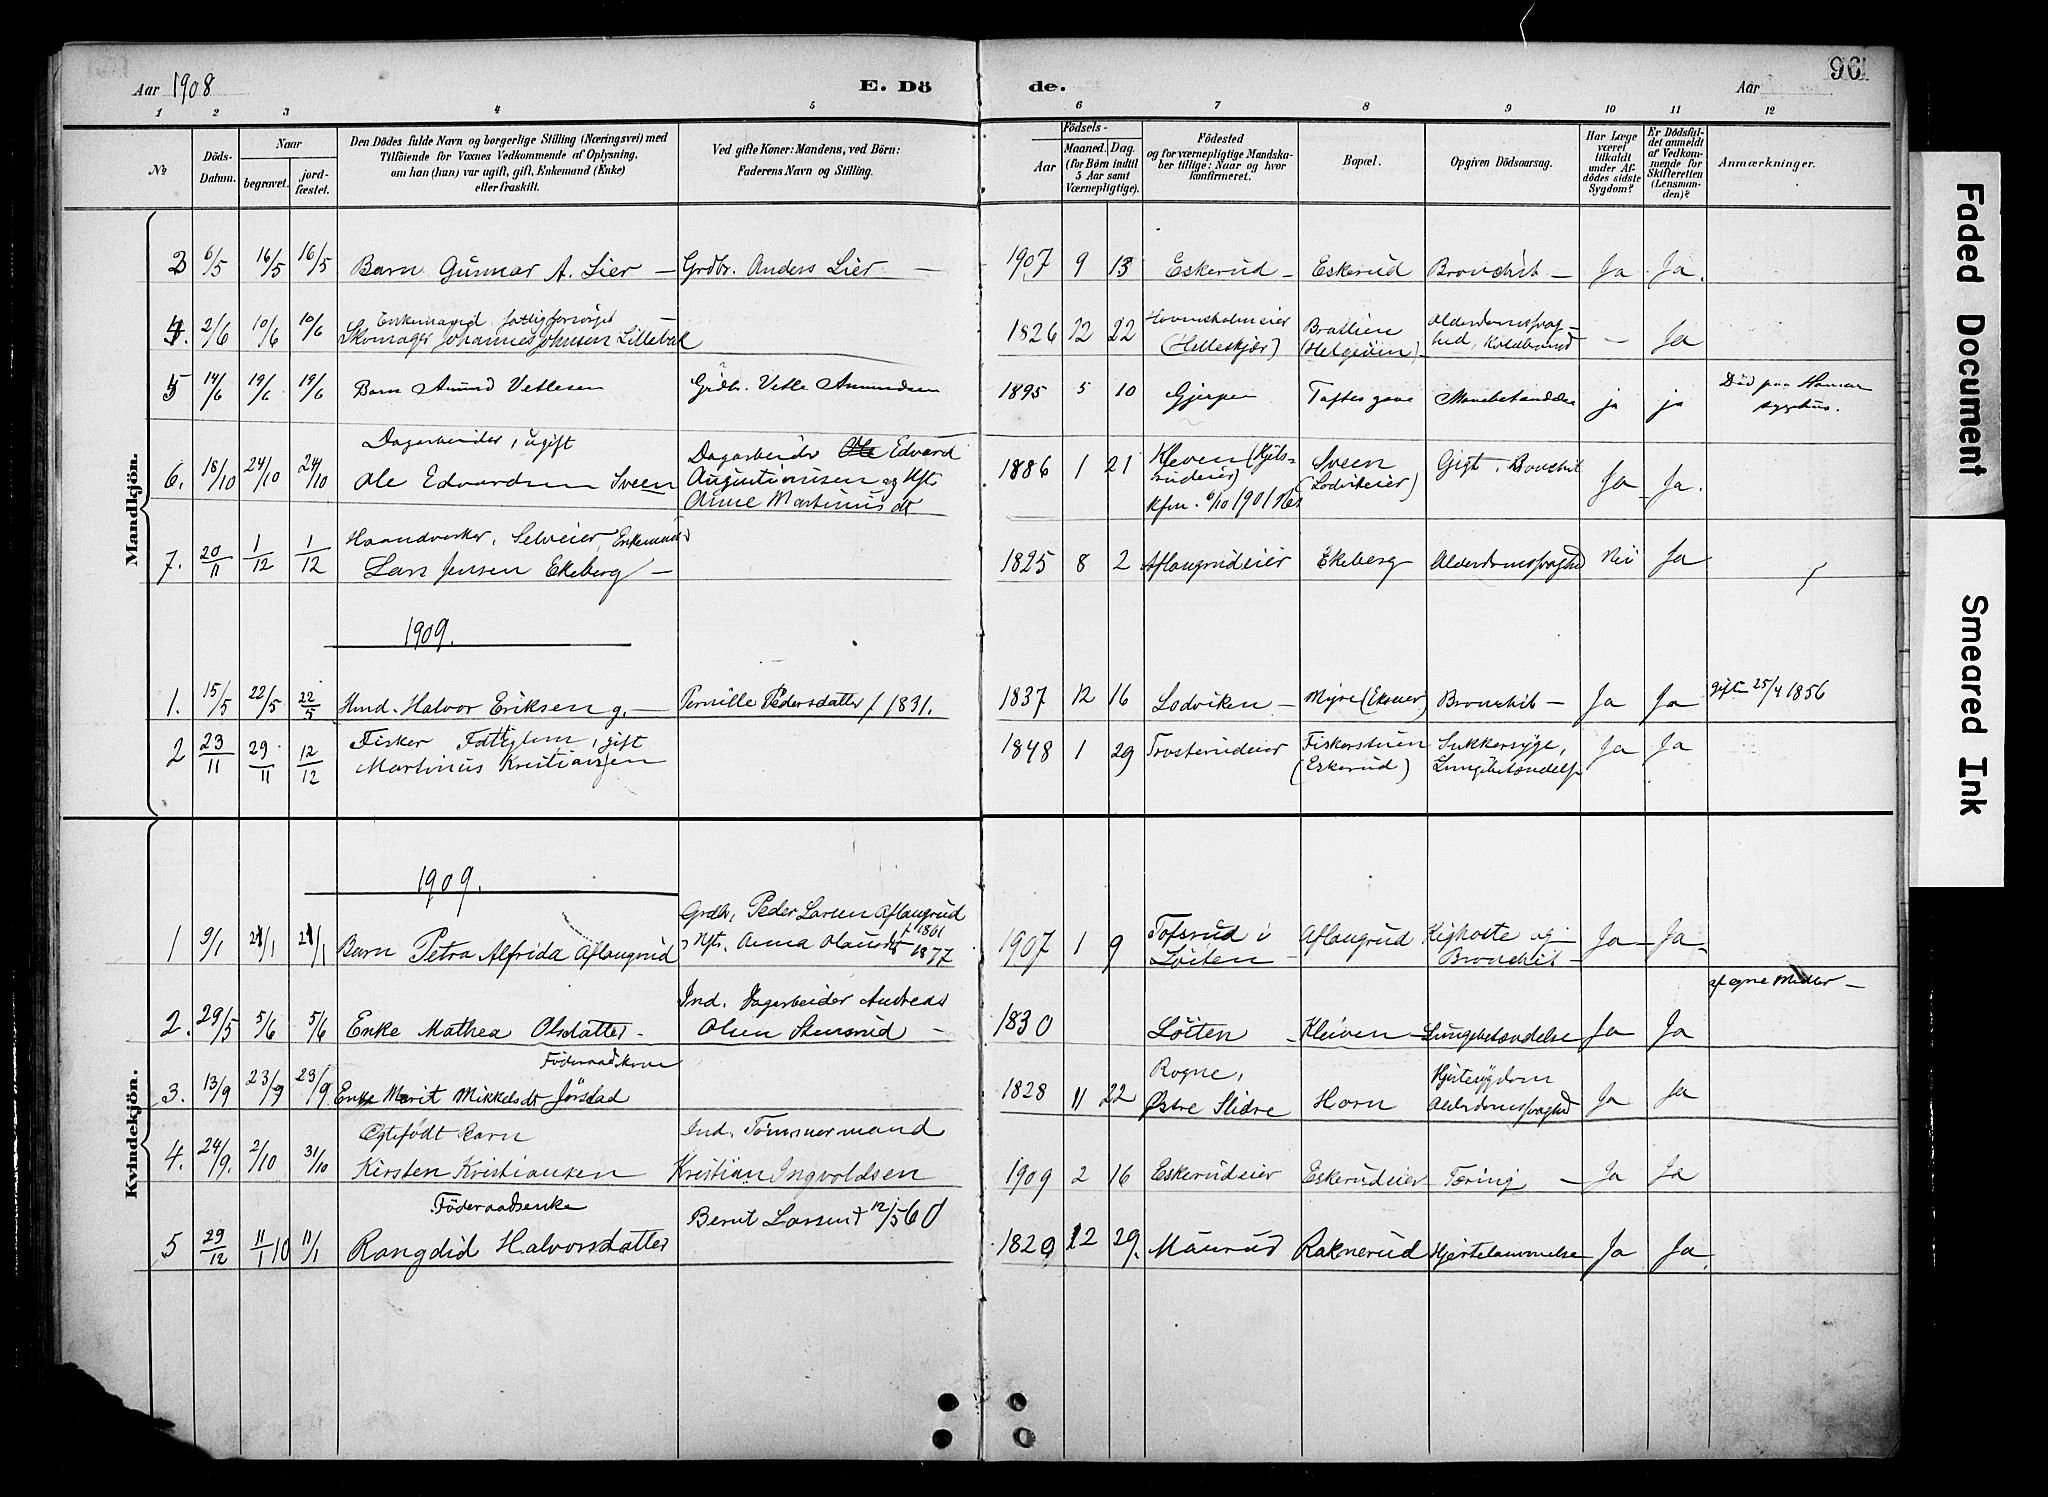 Aar 1908
E. Dö
de.
Aar
96
1 2 3 4 5 6 7 8 9 10 11 12
№
Döds-
Datum.
Naar
begravet.
jord-
fæstet.
Den Dödes fulde Navn og borgerlige Stilling (Næringsvei) med
Tilföiende for Voxnes Vedkommende af Oplysning,
om han (hun) var ugift, gift, Enkemand (Enke)
eller fraskilt.
Ved gifte Koner: Mandens, ved Börn:
Faderens Navn og Stilling.
Födsels-
Aar
Maaned.
Dag.
(for Börn indtil
5 Aar samt
Værnepligtige).
Födested
og for værnepligtige Mandska-
ber tillige: Naar og hvor
konfirmeret.
Bopæl.
Opgiven Dödsaarsag.
Har Læge
været
tilkaldt
under Af-
dödes sidste
Sygdom?
Er Dödsfal-
det anmeldt
af Vedkom-
mende for
Skifteretten
(Lensman-
den)?
Anmærkninger.
Mandkjön.
3 6/5 16/5 16/5 Barn Gunnar A. Lier — Grdbr. Anders Lier — 1907 9 13 Eskerud — Eskerud Bronchit — Ja Ja.
Enkemand, fattigforsörget
4. 2/6 10/6 10/6 Skomager Johannes Johnsen Lillebæk 1826 12 22 (Helleskjær) — Ja
5 14/6 19/6 19/6 Barn Amund Vetlesen Grdbr. Vetle Amundsen 1895 5 10 Gjerpen Toftes gave ja ja Död paa Hamar
sygehus.
Dagarbeider, ugift
6. 18/10 24/10 24/10 Ole Edvardsen Sveen
Dagarbeider Ole Edvard
Augustinusen og Hst.
Anne Martinusdt
1886 1 21 Kleven
Kfm. 6/10 1901 Nes
Sveen
(Lodvikeier)
Gigt, Bronchit Ja Ja.
Haandverker, Selveier, Enkemand
7. 20/11 1/12 1/12 Lars Jensen Ekeberg — 1825 8 2 Aflangrudeier Ekeberg Alderdomssvaghed Nei Ja
1909.
1. 15/5 22/5 22/5 Hmd. Halvor Eriksen g. — Pernille Pedersdatter f 1831. 1837 12 16 Lodviken — Myre Bronchit — Ja Ja gift 25/4 1856
Fisker Fattiglem, gift
2 23/11 29/11 12/12 Martinus Kristiansen 1848 1 29 Trosterudeier
Fiskerstuen
(Eskerud)
Sukkersyge,
Lungebetændelse
Ja Ja
Kvindekjön.
1909.
Grdbr. Peder Larsen Aflangrud
f 1861
1 9/1 21/1 21/1 Barn Petra Alfrida Aflangrud Hst. Anna Olausdt 1877 1907 1 9
Tofsrud i
Löiten —
Aflangrud
Kighoste og
Bronchit —
Ja — Ja —
Ind. Dagarbeider Andreas
2. 29/5 5/6 5/6 Enke Mathea Olsdatter — Olsen Stensrud — 1830 Löiten Kleiven — Lungebetændelse Ja Ja af egne Midler —
Föderaadskone
3. 13/9 23/9 23/9 Enke Marit Mikkelsdt Jörstad 1828 11 22
Rogne,
Østre Slidre
Horn
Hjertesygdom
Alderdomssvaghed
Ja Ja
Ægtefödt Barn Ind. Tömmermand
4. 24/9. 2/10 31/10 Kirsten Kristiansen Kristian Ingvoldsen 1909 2 16 Eskerudeier Eskerudeier Tæring — Ja Ja
Föderaadsenke
Bernt Larsen † 12/5 60
5 29/12 11/1 10 11/1 Rangdid Halvorsdatter 1829 12 29. Maurud Raknerud Hjertelammelse Ja Ja
Faded Document
Smeared Ink